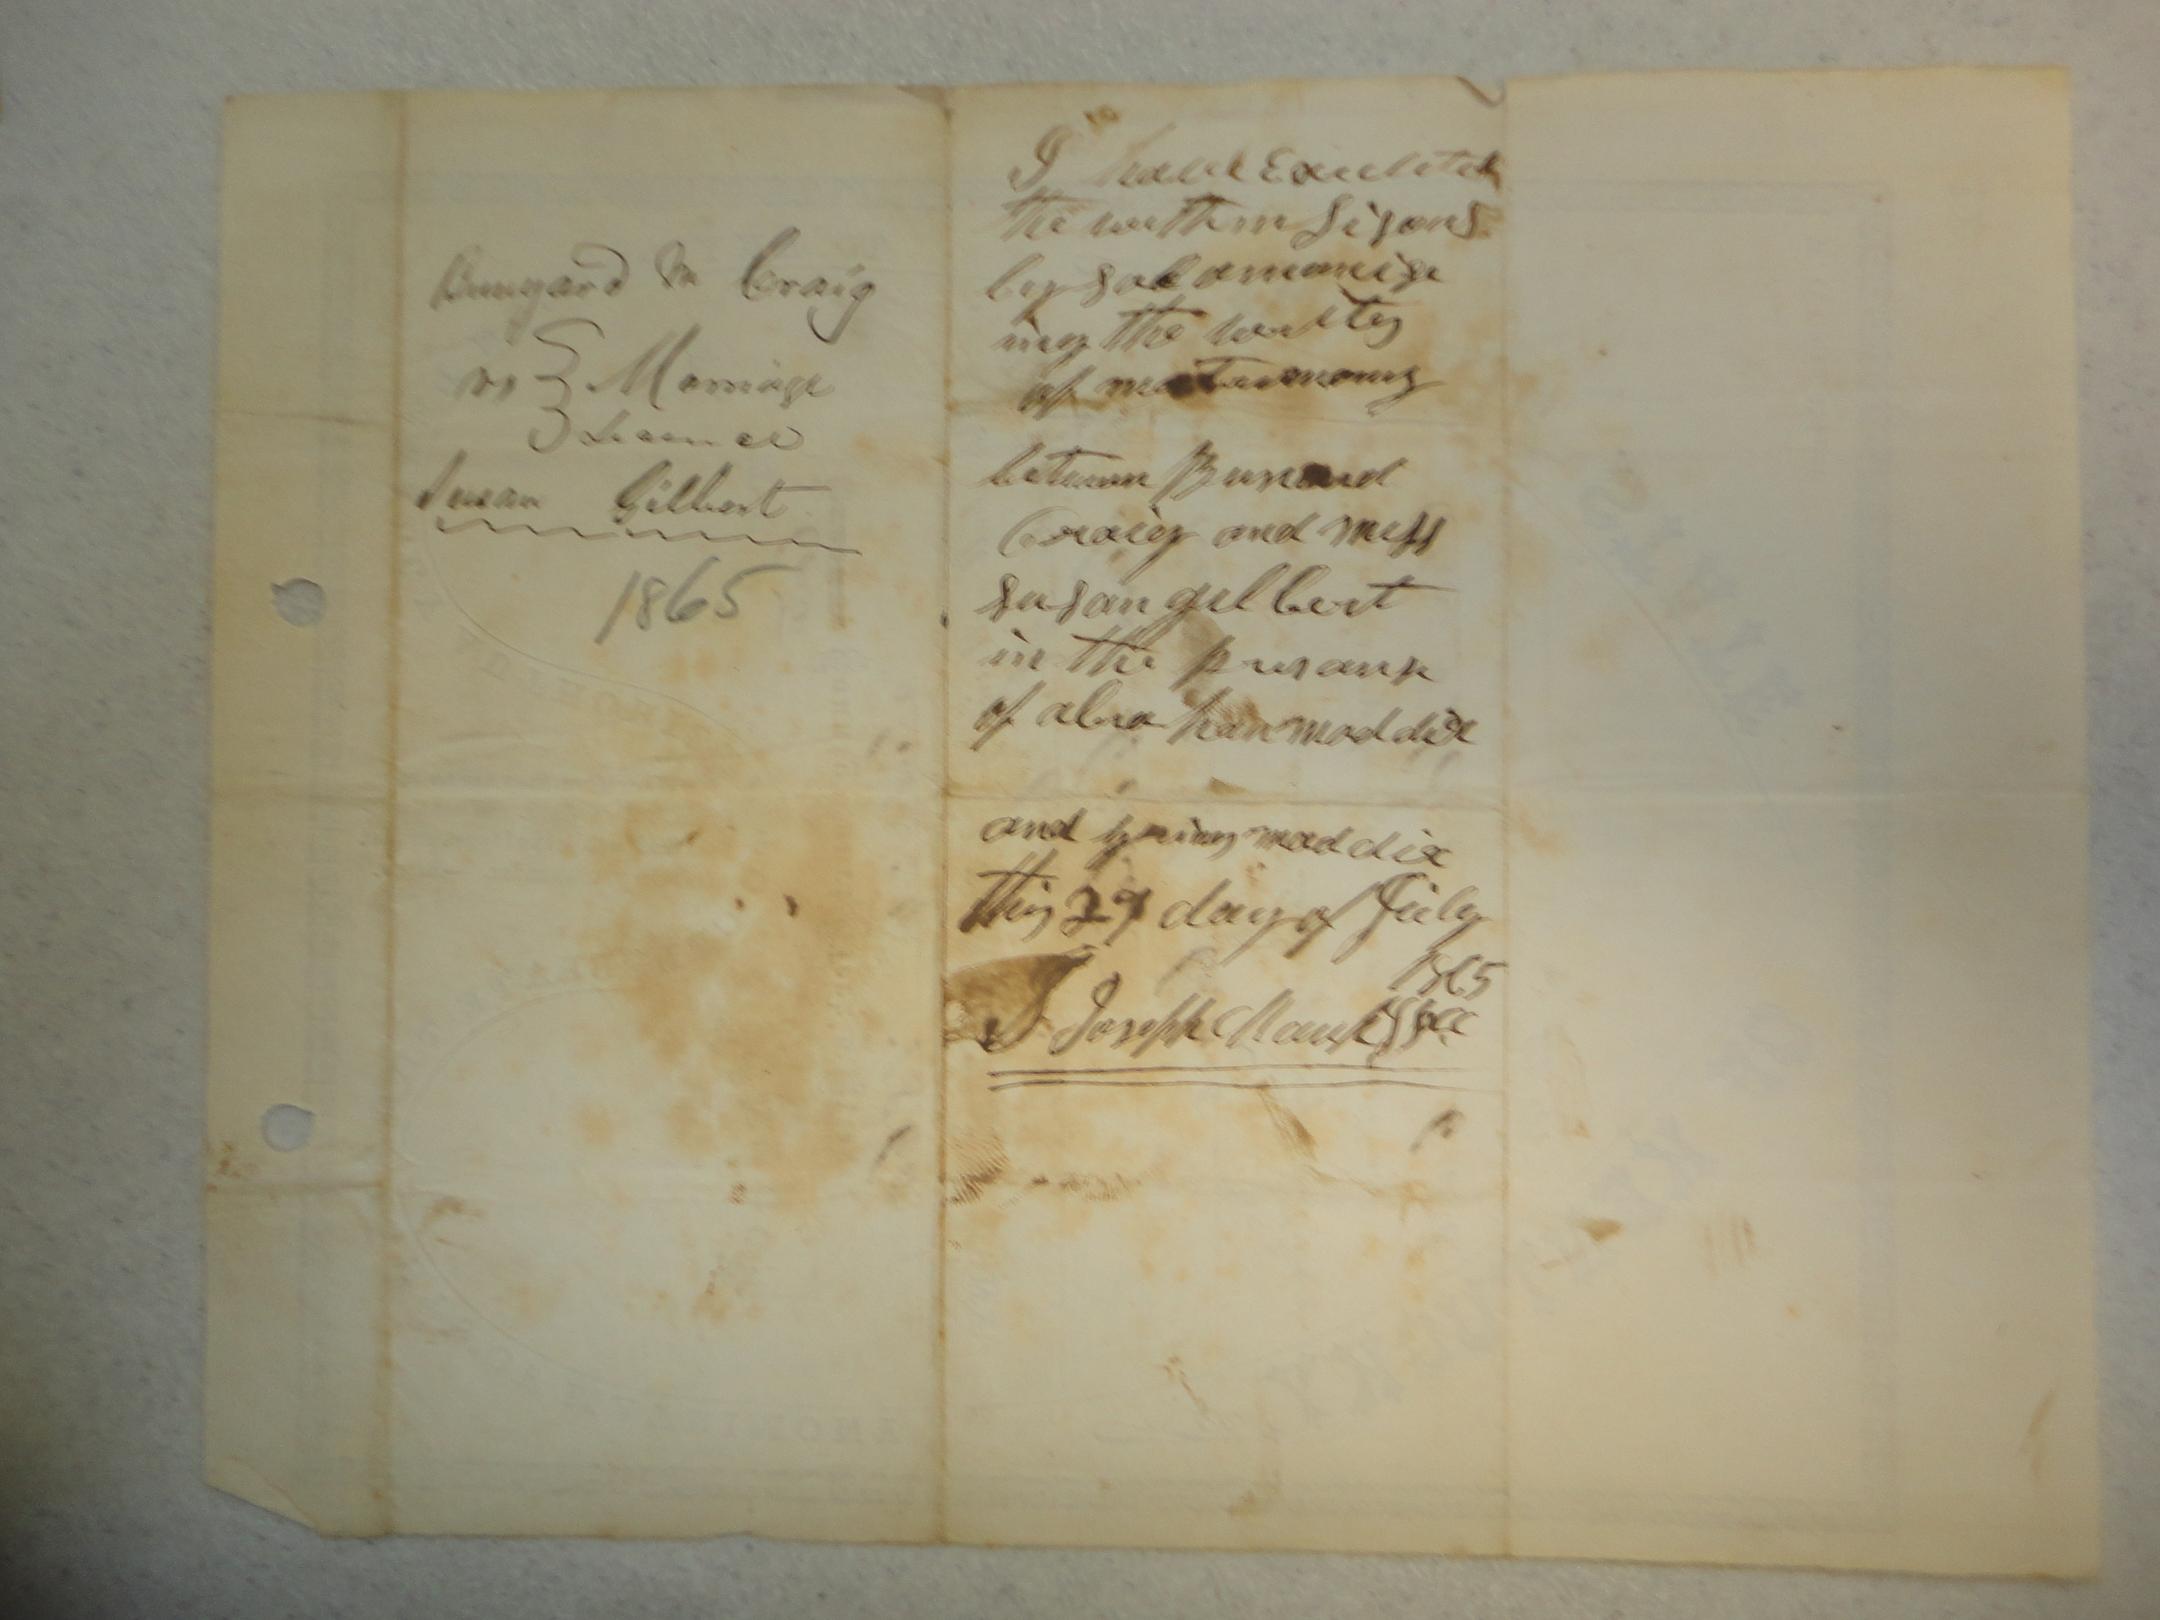 Bunyard M Craig
vs Marriage
Licence
Susan Gilbert
1865
I have Executed
the within Lisons
by Salamonise
ing the
of matrimony
between Bunard
Craig and miss
susan gilbert
in the presans
of abraham maddix
and maddix
this 27 day of July
1865
Joseph